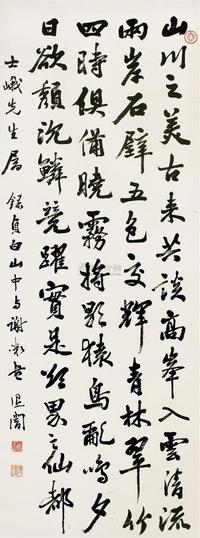 山川之美古来共谈高峯入云清流
兩岸石壁五色交輝青林翠竹
四時俱備曉霧將歇猿鳥亂鳴夕
日欲頹沉鱗競躍實是欲界之仙都
錄貞白山中与謝
士峨先生屬